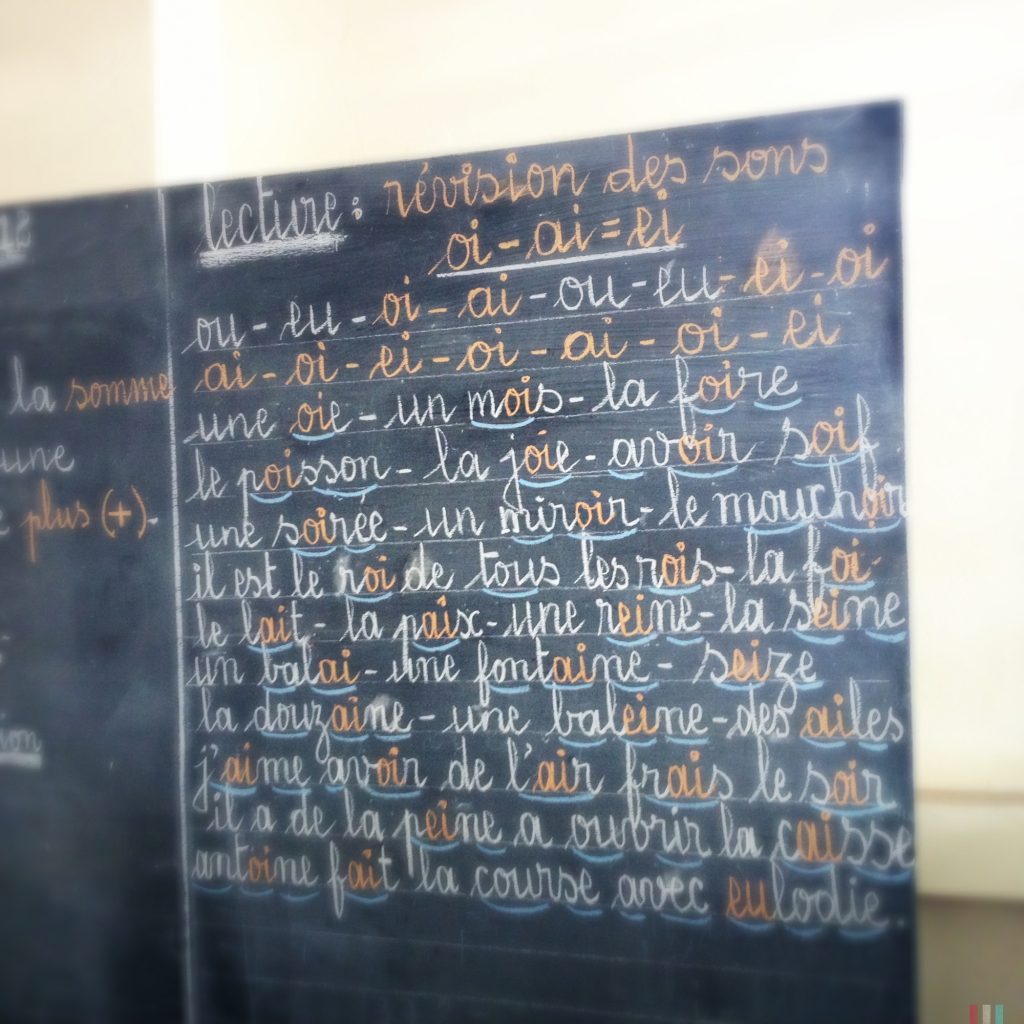 la somme
une
plus (+).
lecture : révision des sons
oi - ai = ei
ou - eu - oi - ai - ou - eu - ei - oi
ai - oi - ei - oi - ai - oi - ei
une oie - un mois - la foire
le poisson - la joie - avoir soif
une soirée - un miroir - le mouchoir
il est le roi de tous les rois - la foi
le lait - la paix - une reine - la seine
un balai - une fontaine - seize
la douzaine - une baleine - des ailes
j'aime avoir de l'air frais le soir
il a de la peine a ouvrir la caisse
antoine fait la course avec eulodie.